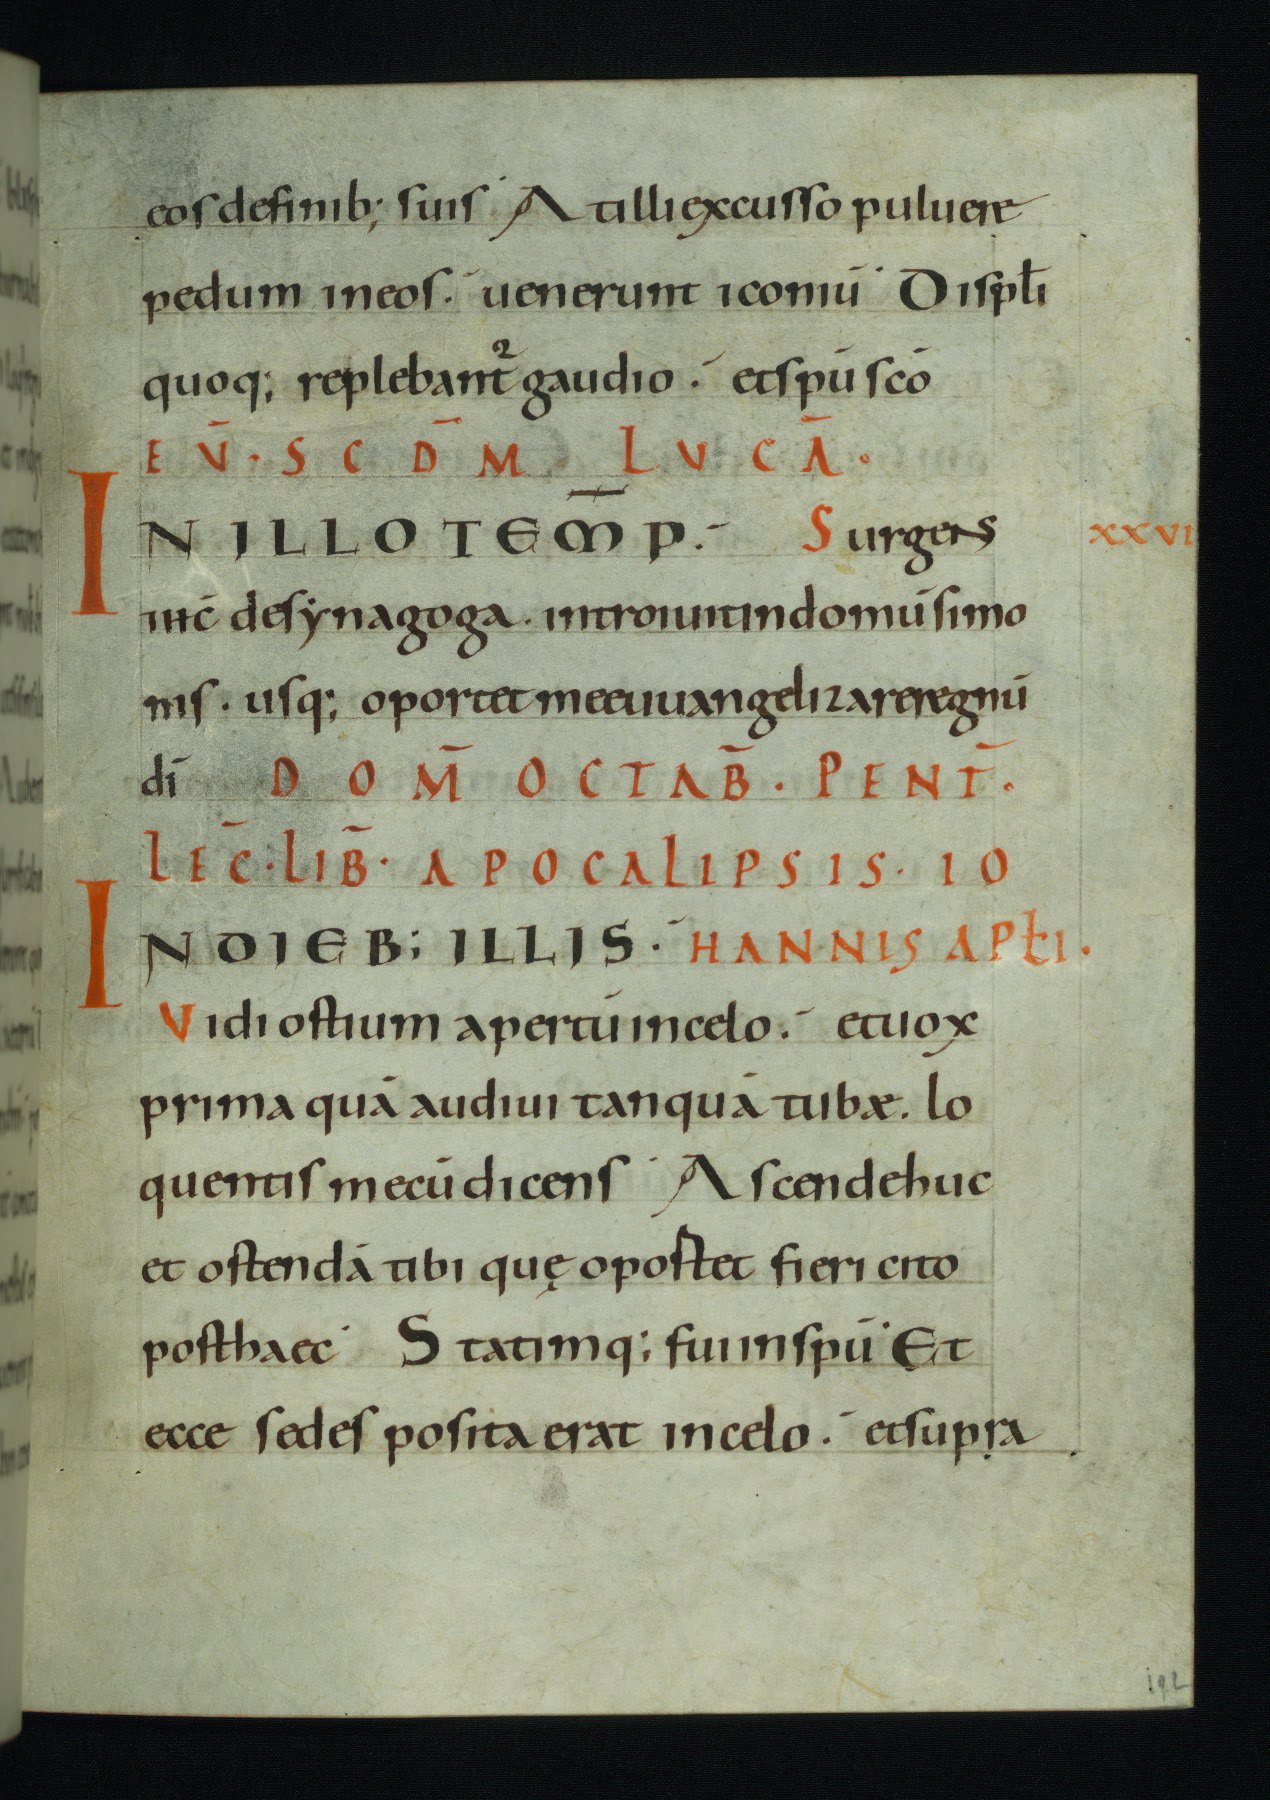 eos de finib; suis At illi excusso puluere
pedum in eos. uenerunt iconiū Discipli
quoq; replebant᷑ gaudio. et spū scō
EV̄. SCD̄M LVCĀ.
IN ILLO TEM̄P. Surgens XXVI
ihc̄ de synagoga. introiuit in domū simo
nis. usq; oportet me euuangelizare regnū
dī DOM̄ OCTAB̄. PENT̄.
LEC̄. LIB̄. APOCALIPSIS. IO
IN DIEB; ILLIS. HANNIS APŁI.
Vidi ostium apertū in celo. et uox
prima quā audiui tanquā tubæ. lo
quentis mecū dicens Ascende huc
et ostendā tibi quę oportet fieri cito
post haec Statimq; fui in spū Et
ecce sedes posita erat in celo. et supra
192